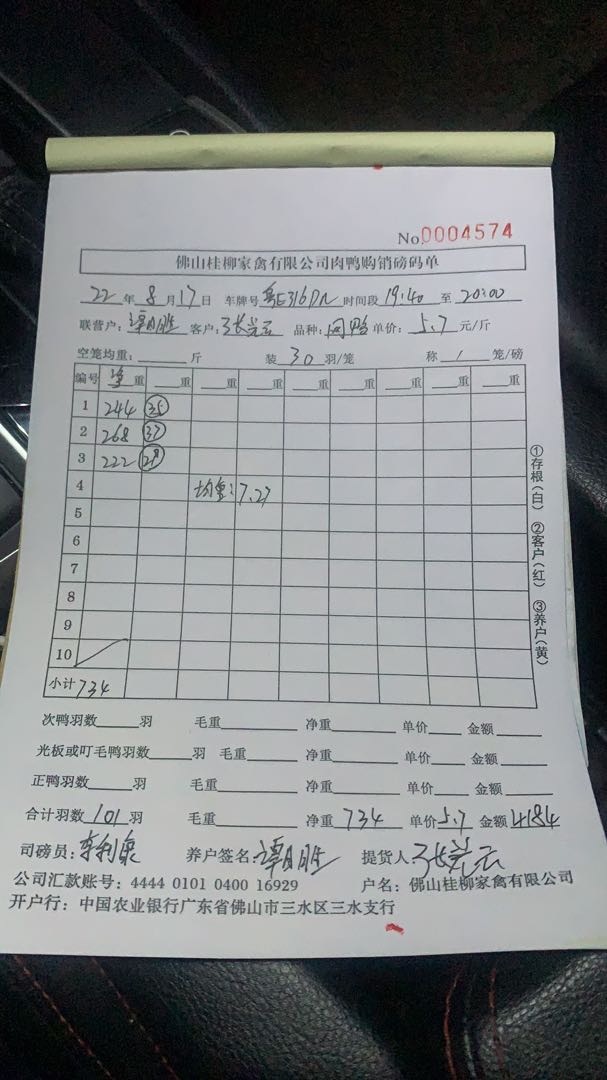 No.0004574
佛山桂柳家禽有限公司肉鸭购销磅码单
22年8月17日 车牌号粤E316DN 时间段19:40至20:00
联营户:谭胜 客户: 品种: 单价:5.7元/斤
空笼均重:______斤 装30羽/笼 称1笼/磅
编号 净重 重 重 重 重 重 重 重 重
1 244 35
2 268 37
3 222 29
4 均重:7.27
5
6
7
8
9
10
小计 734
次鸭羽数______羽 毛重______ 净重______ 单价______ 金额______
光板或叮毛鸭羽数______羽 毛重______ 净重______ 单价______ 金额______
正鸭羽数______羽 毛重______ 净重______ 单价______ 金额______
合计羽数101羽 毛重______ 净重734 单价5.7 金额4184
司磅员:李利泉 养户签名: 提货人
公司汇款账号:4444 0101 0400 16929 户名:佛山桂柳家禽有限公司
开户行:中国农业银行广东省佛山市三水区三水支行
①存根(白) ②客户(红) ③养户(黄)